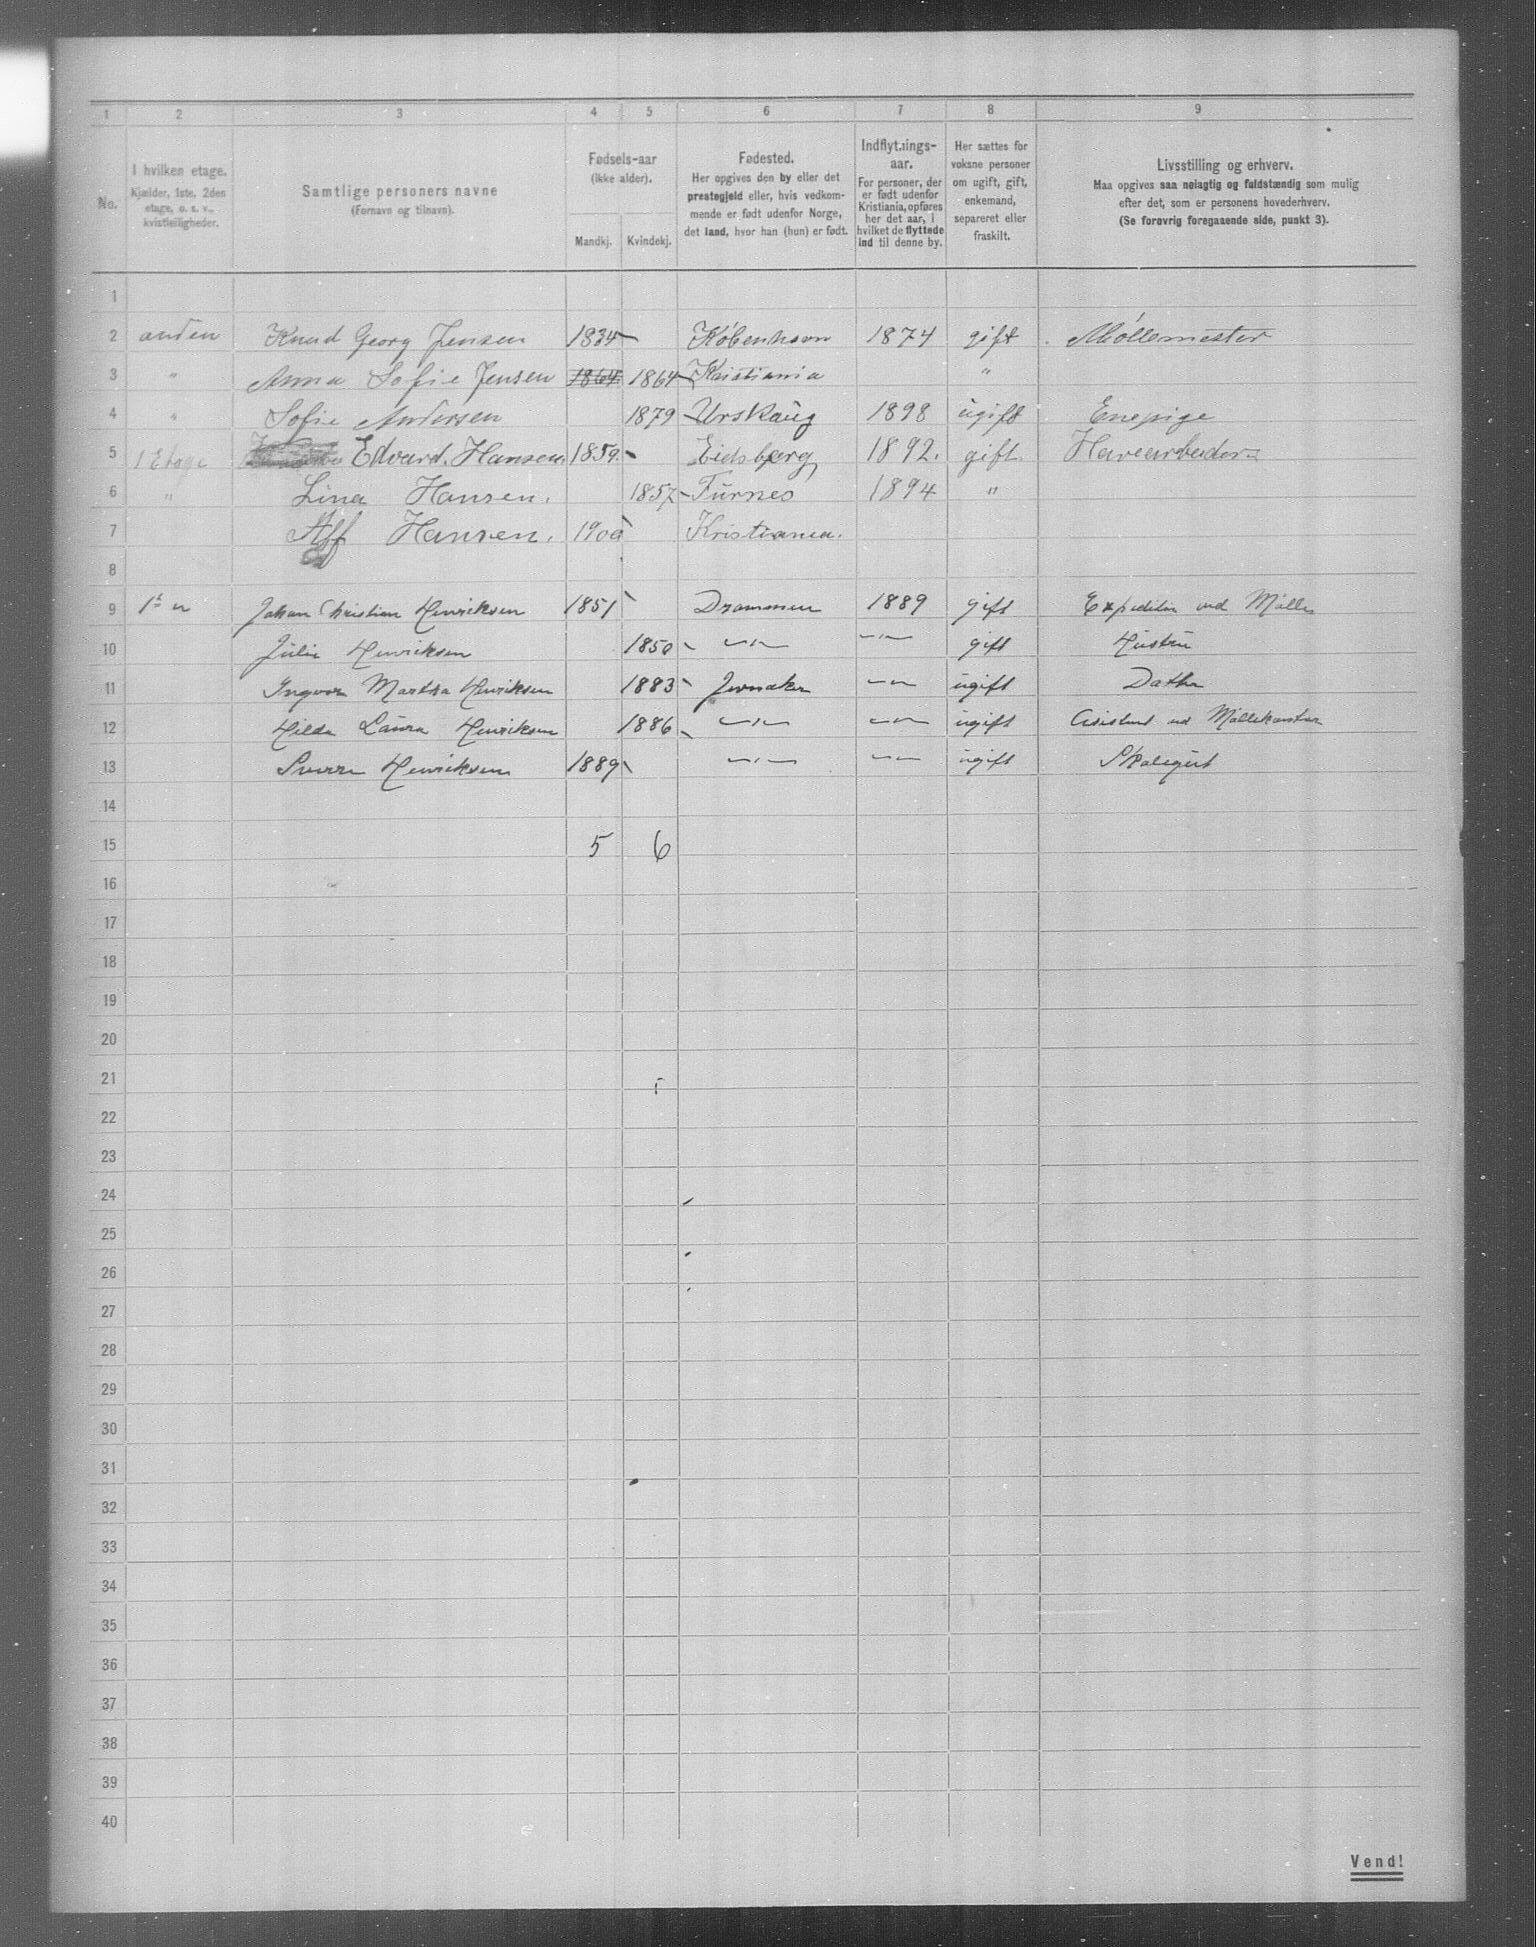 1 2 3 4 5 6 7 8 9
No.
I hvilken etage.
Kjælder, 1ste, 2den
etage, o. s. v.,
kvistleiligheder.
Samtlige personers navne
(Fornavn og tilnavn).
Fødsels-aar
(ikke alder).
Mandkj. Kvindekj.
Fødested.
Her opgives den by eller det
prestegjeld eller, hvis vedkom-
mende er født udenfor Norge,
det land, hvor han (hun) er født.
Indflytnings-
aar.
For personer, der
er født udenfor
Kristiania, opføres
her det aar, i
hvilket de flyttede
ind til denne by.
Her sættes for
voksne personer
om ugift, gift,
enkemand,
separeret eller
fraskilt.
Livsstilling og erhverv.
Maa opgives saa nøiagtig og fuldstændig som mulig
efter det, som er personens hovederhverv.
(Se forøvrig foregaaende side, punkt 3).
1
2 anden Knud Georg Jensen 1834 København 1874 gift Møllemester
3 " Anna Sofie Jensen 1864 1864 Kristiania "
4 " Sofie Andersen 1879 Urskaug 1898 ugift Enepige
5 1 Etage Edvard. Hansen 1859. Eidsberg 1892. gift Havearbeider
6 " Lina Hansen. 1857 Furnes 1894 "
7 Alf Hansen. 1900 Kristiania.
8
9 1ste Johan Christian Henriksen 1851 Drammen 1889 gift Expeditør ved Mølle
10 Julie Henriksen 1850 —"— —"— gift Hustru
11 Ingvor Martha Henriksen 1883 Jevnaker —"— ugift Datter
12 Hilda Laura Henriksen 1886 —"— —"— ugift Assistent ved Møllekontor
13 Sverre Henriksen 1889 —"— —"— ugift Skolegut
14
15 5 6
16
17
18
19
20
21
22
23
24
25
26
27
28
29
30
31
32
33
34
35
36
37
38
39
40
Vend!